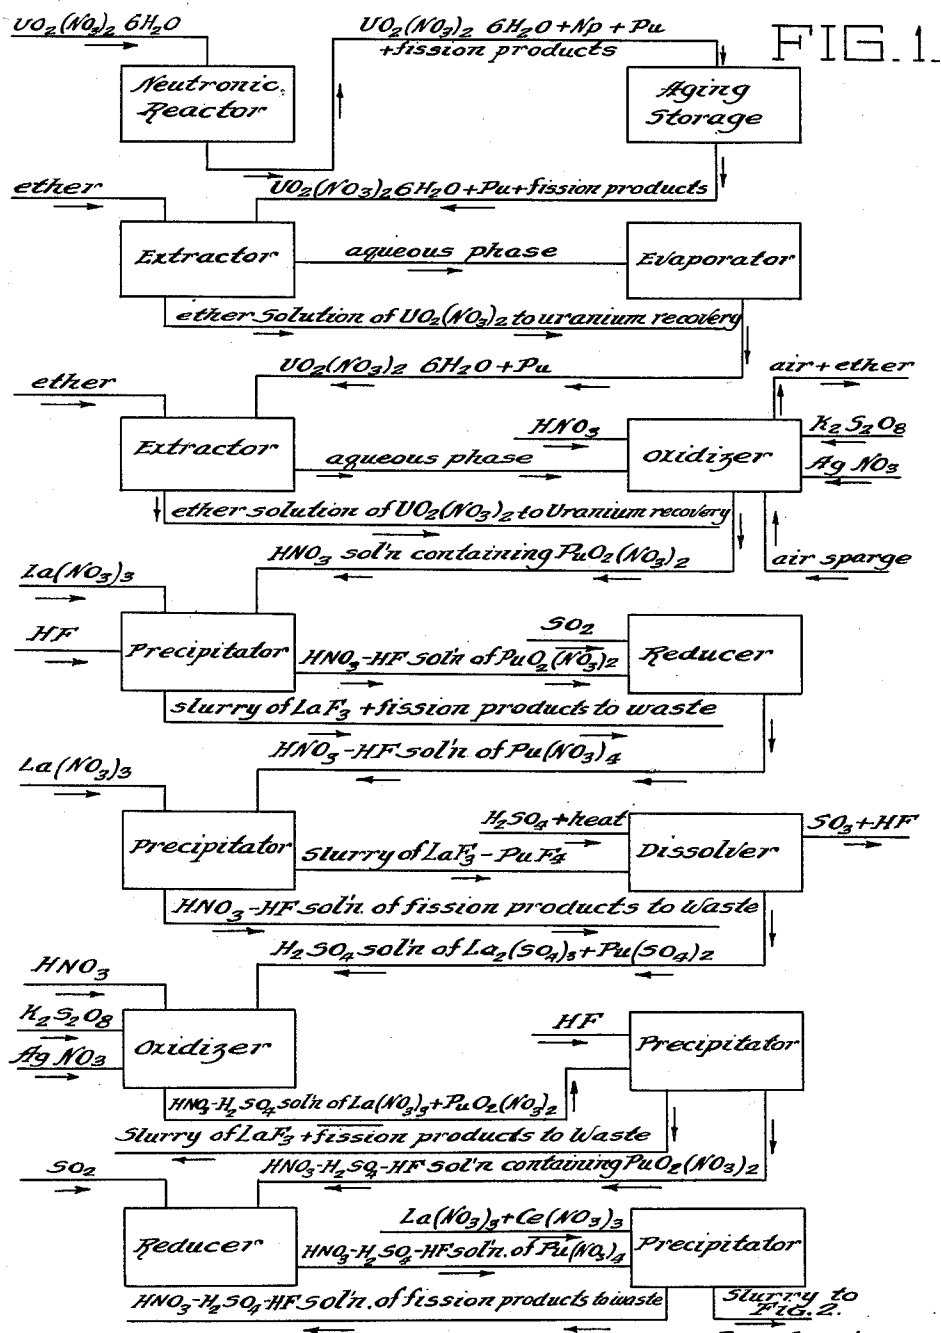 FIG. 1.
UO2(NO3)2 6H2O
UO2(NO3)2 6H2O + Np + Pu
+fission products
Neutronic
Reactor
Aging
Storage
ether
UO2(NO3)2 6H2O + Pu + fission products
Extractor
aqueous phase
Evaporator
ether Solution of UO2(NO3)2 to uranium recovery
ether
UO2(NO3)2 6H2O + Pu
air + ether
Extractor
HNO3
Oxidizer
K2S2O8
aqueous phase
Ag NO3
ether solution of UO2(NO3)2 to Uranium recovery
HNO3 sol'n containing PuO2(NO3)2
air sparge
La(NO3)3
HF
Precipitator
SO2
HNO3-HF sol'n of PuO2(NO3)2
Reducer
slurry of LaF3 + fission products to waste
HNO3-HF sol'n of Pu(NO3)4
La(NO3)3
Precipitator
H2SO4 + heat
Slurry of LaF3-PuF4
Dissolver
SO3 + HF
HNO3-HF sol'n. of fission products to Waste
H2SO4 sol'n of La2(SO4)3 + Pu(SO4)2
HNO3
K2S2O8
Ag NO3
Oxidizer
HF
Precipitator
HNO3-H2SO4 sol'n of La(NO3)3 + PuO2(NO3)2
Slurry of LaF3 + fission products to Waste
SO2
HNO3-H2SO4-HF sol'n containing PuO2(NO3)2
Reducer
La(NO3)3 + Ce(NO3)3
HNO3-H2SO4-HF sol'n. of Pu(NO3)4
Precipitator
HNO3-H2SO4-HF sol'n. of fission products to waste
Slurry to
FIG. 2.